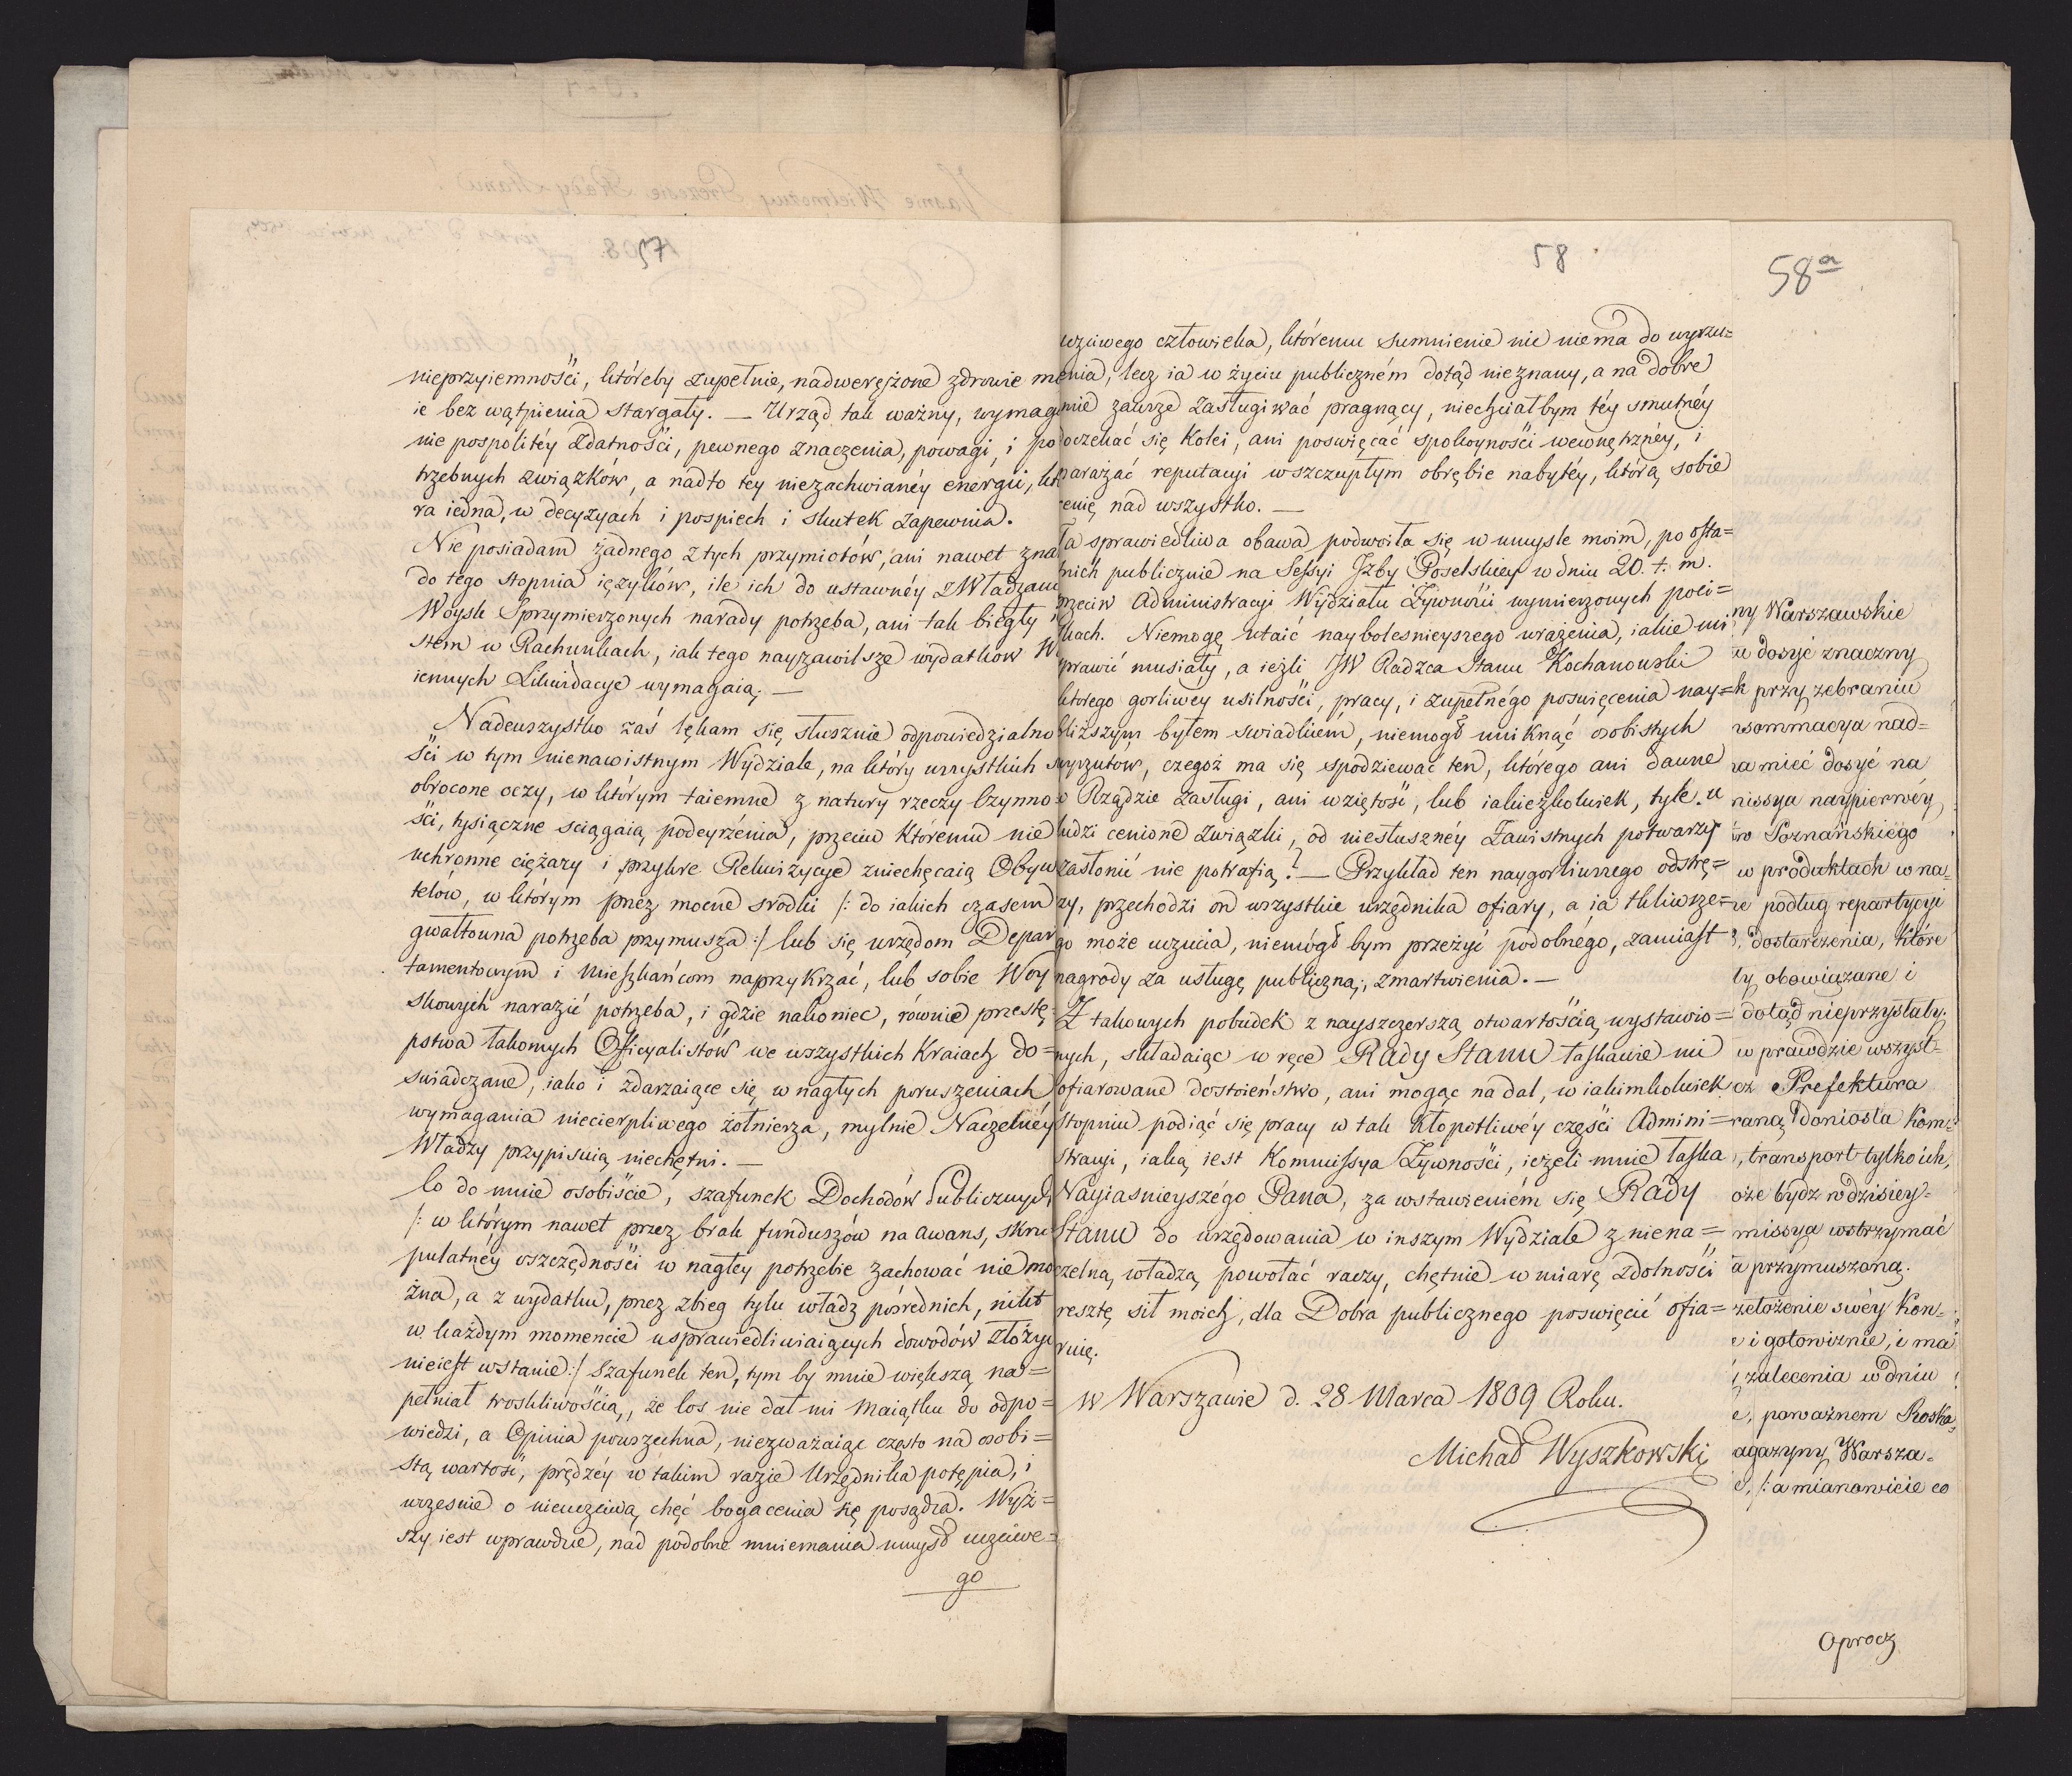 57
nieprzyiemnośći, któreby zupełnie, nadwerężone zdrowie mo
ie bez wątpienia stargały. — Urząd tak ważny, wymaga
nie pospolitéy zdatnośći, pewnego znaczenia, powagi, i po
trzebnych związków, a nadto tey niezachwianéy energii, któ
ra iedna, w decyzyach i pospiech i skutek zapewnia.
Nie posiadam żadnego z tych przymiotów, ani nawet zna
do tego stopnia ięzyków, ile ich do ustawnéy z Władzami
Woysk Sprzymierzonych narady potrzeba, ani tak biegły
stem w Rachunkach, iak tego nayzawilsze wydatków Wo
iennych Likwidacye wymagaią. —
Nadewszystko zaś lękam się słusznie odpowiedzialno
śći w tym nienawistnym Wydziale, na który wszystkich są
obrocone oczy, w którym taiemne z natury rzeczy Czynno
śći, tysiączne sciągaią podeyrzenia, przeciw Któremu nie
uchronne ciężary i przykre Rekwizycye zniechęcaią Obywa
telów, w którym przez mocne srodki /: do iakich czasem
gwałtowna potrzeba przymusza :/ lub się urzędom Depar
tamentowym i Mieszkańcom naprzykrzać, lub sobie Woy
skowych narazić potrzeba, i gdzie nakoniec, równie przestę
pstwa łakomych Officyalistów we wszystkich Kraiach do=
swiadczane, iako i zdarzaiące się w nagłych poruszeniach
wymagania niecierpliwego żołnierza, mylnie Naczelnéy
Władzy przypisuią niechętni. —
Co do mnie osobiście, szafunek Dochodów Publicznych
/: w którym nawet przez brak funduszów na awans, skru
pulatnéy oszczędnośći w nagłey potrzebie zachować nie mo
żna, a z wydatku, przez zbieg tylu władz pośrednich, nikt
w każdym momencie usprawiedliwiaiących dowodów złożyć
nieiest wstanie :/ szafunek ten, tym by mnie większą na=
pełniał troskliwośćią, że los nie dał mi Maiątku do odpo=
wiedzi, a Opinia powszechna, niezważaiąc często na osobi=
stą wartość, prędzéy w takim razie Urzędnika potępia, i
wrzesnie o nieuczciwą chęć bogacenia się posądza. Wyż=
szy iest wprawdzie, nad podobne mniemania umysł uczciwe=
go
58
uczciwego człowieka, któremu sumnienie nic niema do wyrzu=
cenia, lecz ia w życiu publiczném dotąd nieznany, a na dobre
imie zawsze zasługiwać pragnący, niechciałbym téy smutnéy
doczekać się Kolei, ani poswięcać spokoynośći wewnętrznéy, i
narażać reputacyi w szczupłym obrębie nabytéy, którą sobie
cenię nad wszystko. —
Ta sprawiedliwa obawa podwoiła się w umysle moim, po osta=
tnich publicznie na Sessyi Izby Poselskiey w dniu 20. t. m.
przeciw Administracyi Wydziału Żywnośći wymierzonych poci=
skach. Niemogę utaić naybolesnieyszego wrażenia, iakie mi
sprawić musiały, a ieżli JW Radzca Stanu Kochanowski
którego gorliwey usilnośći, pracy, i zupełnégo poswięcenia nay=
bliższym byłem swiadkiém, niemogł uniknąć osobistych
wyrzutów, czegoż ma się spodziewać ten, którego ani dawne
w Rządzie zasługi, ani wziętość, lub iakieżkolwiek, tyle u
ludzi cenione związki, od niesłusznéy Zawistnych potwarzy
zasłonić nie potrafią? — Przykład ten naygorliwszego odstrę=
czy, przechodzi on wszystkie urzędnika ofiary, a ia tkliwsze=
go może uczucia, niemógł bym przeżyć podobnégo, zamiast
nagrody za usługę publiczną, zmartwienia. —
Z takowych pobudek z nayszczerszą otwartośćią wystawio=
nych, składaiąc w ręce Rady Stanu łaskawie mi
ofiarowane dostoieństwo, ani mogąc nadal, w iakimkolwiek
Stopniu podiąć się pracy w tak kłopotliwéy częśći Admini=
stracyi, iaką iest Kommissya Żywnośći, ieżeli mnie łaska
Nayiasnieyszégo Pana, za wstawieniém się Rady
Stanu do urzędowania w inszym Wydziale z niena=
czelną władzą powołać raczy, chętnie w miarę zdolnośći
resztę sił moich, dla Dobra publicznego poswięcić ofia=
ruię.
w Warszawie d. 28 Marca 1809 Roku.
Michał Wyszkowski
58a
ny Warszawskie
u dosyć znaczny
k przy zebraniu
nsommacya nad=
a mieć dosyć na
missya naypierwéy
wo Poznańskiego
w produktach w na=
e podług repartycyi
dostarczenia, które
ły obowiązane i
dotąd nieprzysłały.
w prawdzie wszyst=
cz Prefektura
raną doniosła Kom=
, transport tylko ich,
oże bydz w dzisiey=
missya wstrzymać
a przymuszoną.
zełożenie swéy Kon=
e i gotowiznie, i ma
i zalecenia w dniu
e, poważnem Roska
agazyny Warsza=
e, /: a mianowicie co
oprocz